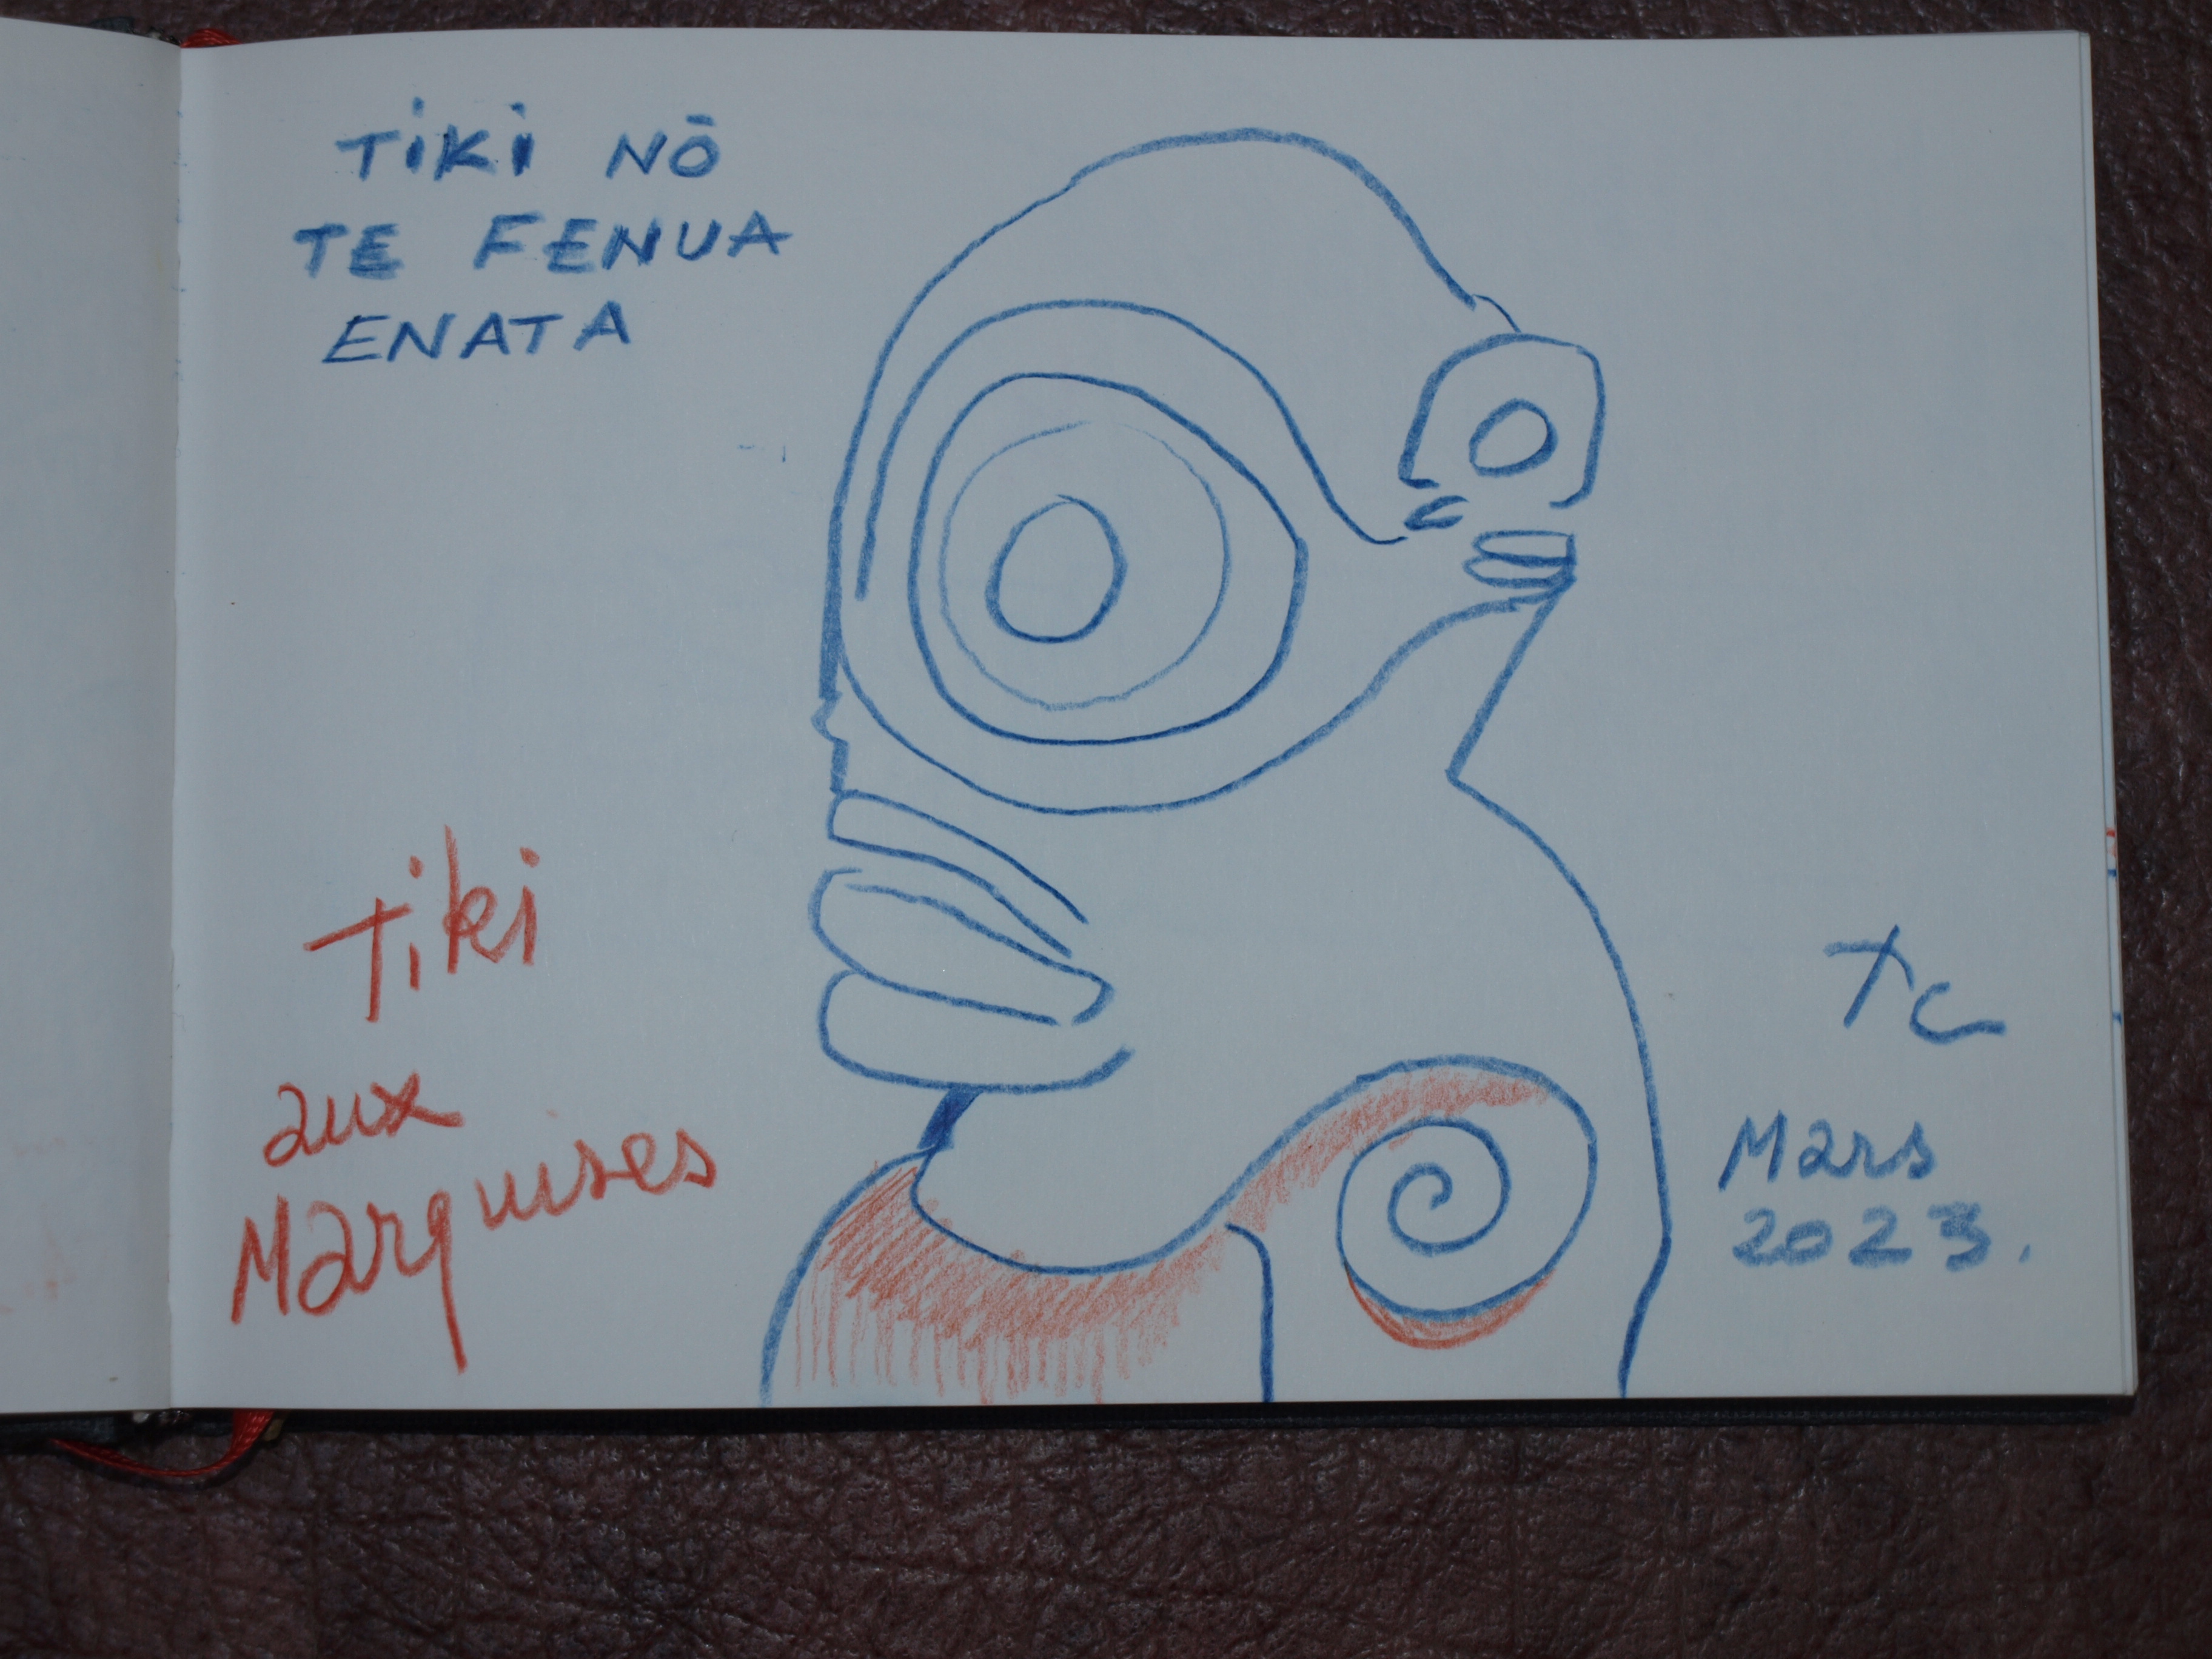 TiKi NŌ
TE FENUA
ENATA
Tiki
aux
Marquises
TC
Mars
2023.